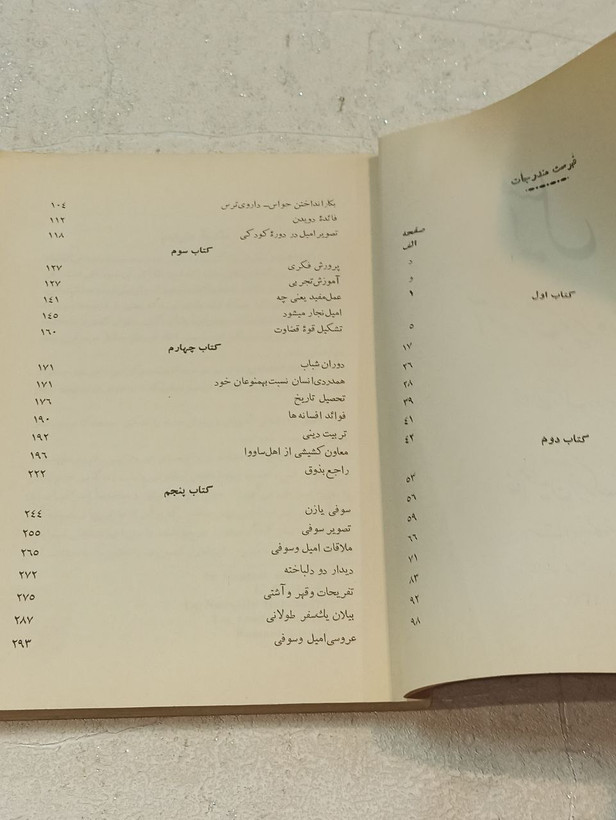 فهرست مندرجات
صفحه
الف
د
و
۱
کتاب اول
۵
۱۷
۲۶
۲۸
۳۹
۴۱
۴۲
کتاب دوم
۵۳
۵۶
۵۹
۶۶
۷۱
۸۳
۹۲
۹۸
بکار انداختن حواس ـ داروی ترس ۱۰۴
فائدهٔ دویدن ۱۱۲
تصویر امیل در دورهٔ کودکی ۱۱۸
کتاب سوم
پرورش فکری ۱۲۷
آموزش تجربی ۱۲۷
عمل مفید یعنی چه ۱۴۱
امیل نجار میشود ۱۴۵
تشکیل قوهٔ قضاوت ۱۶۰
کتاب چهارم
دوران شباب ۱۷۱
همدردی انسان نسبت بهمنوعان خود ۱۷۱
تحصیل تاریخ ۱۷۶
فوائد افسانه ها ۱۹۰
تربیت دینی ۱۹۲
معاون کشیشی از اهل ساووا ۱۹۶
راجع بذوق ۲۲۲
کتاب پنجم
سوفی یا زن ۲۴۴
تصویر سوفی ۲۵۵
ملاقات امیل و سوفی ۲۶۵
دیدار دو دلباخته ۲۷۲
تفریحات و قهر و آشتی ۲۷۵
بیلان یك سفر طولانی ۲۸۷
عروسی امیل و سوفی ۲۹۳